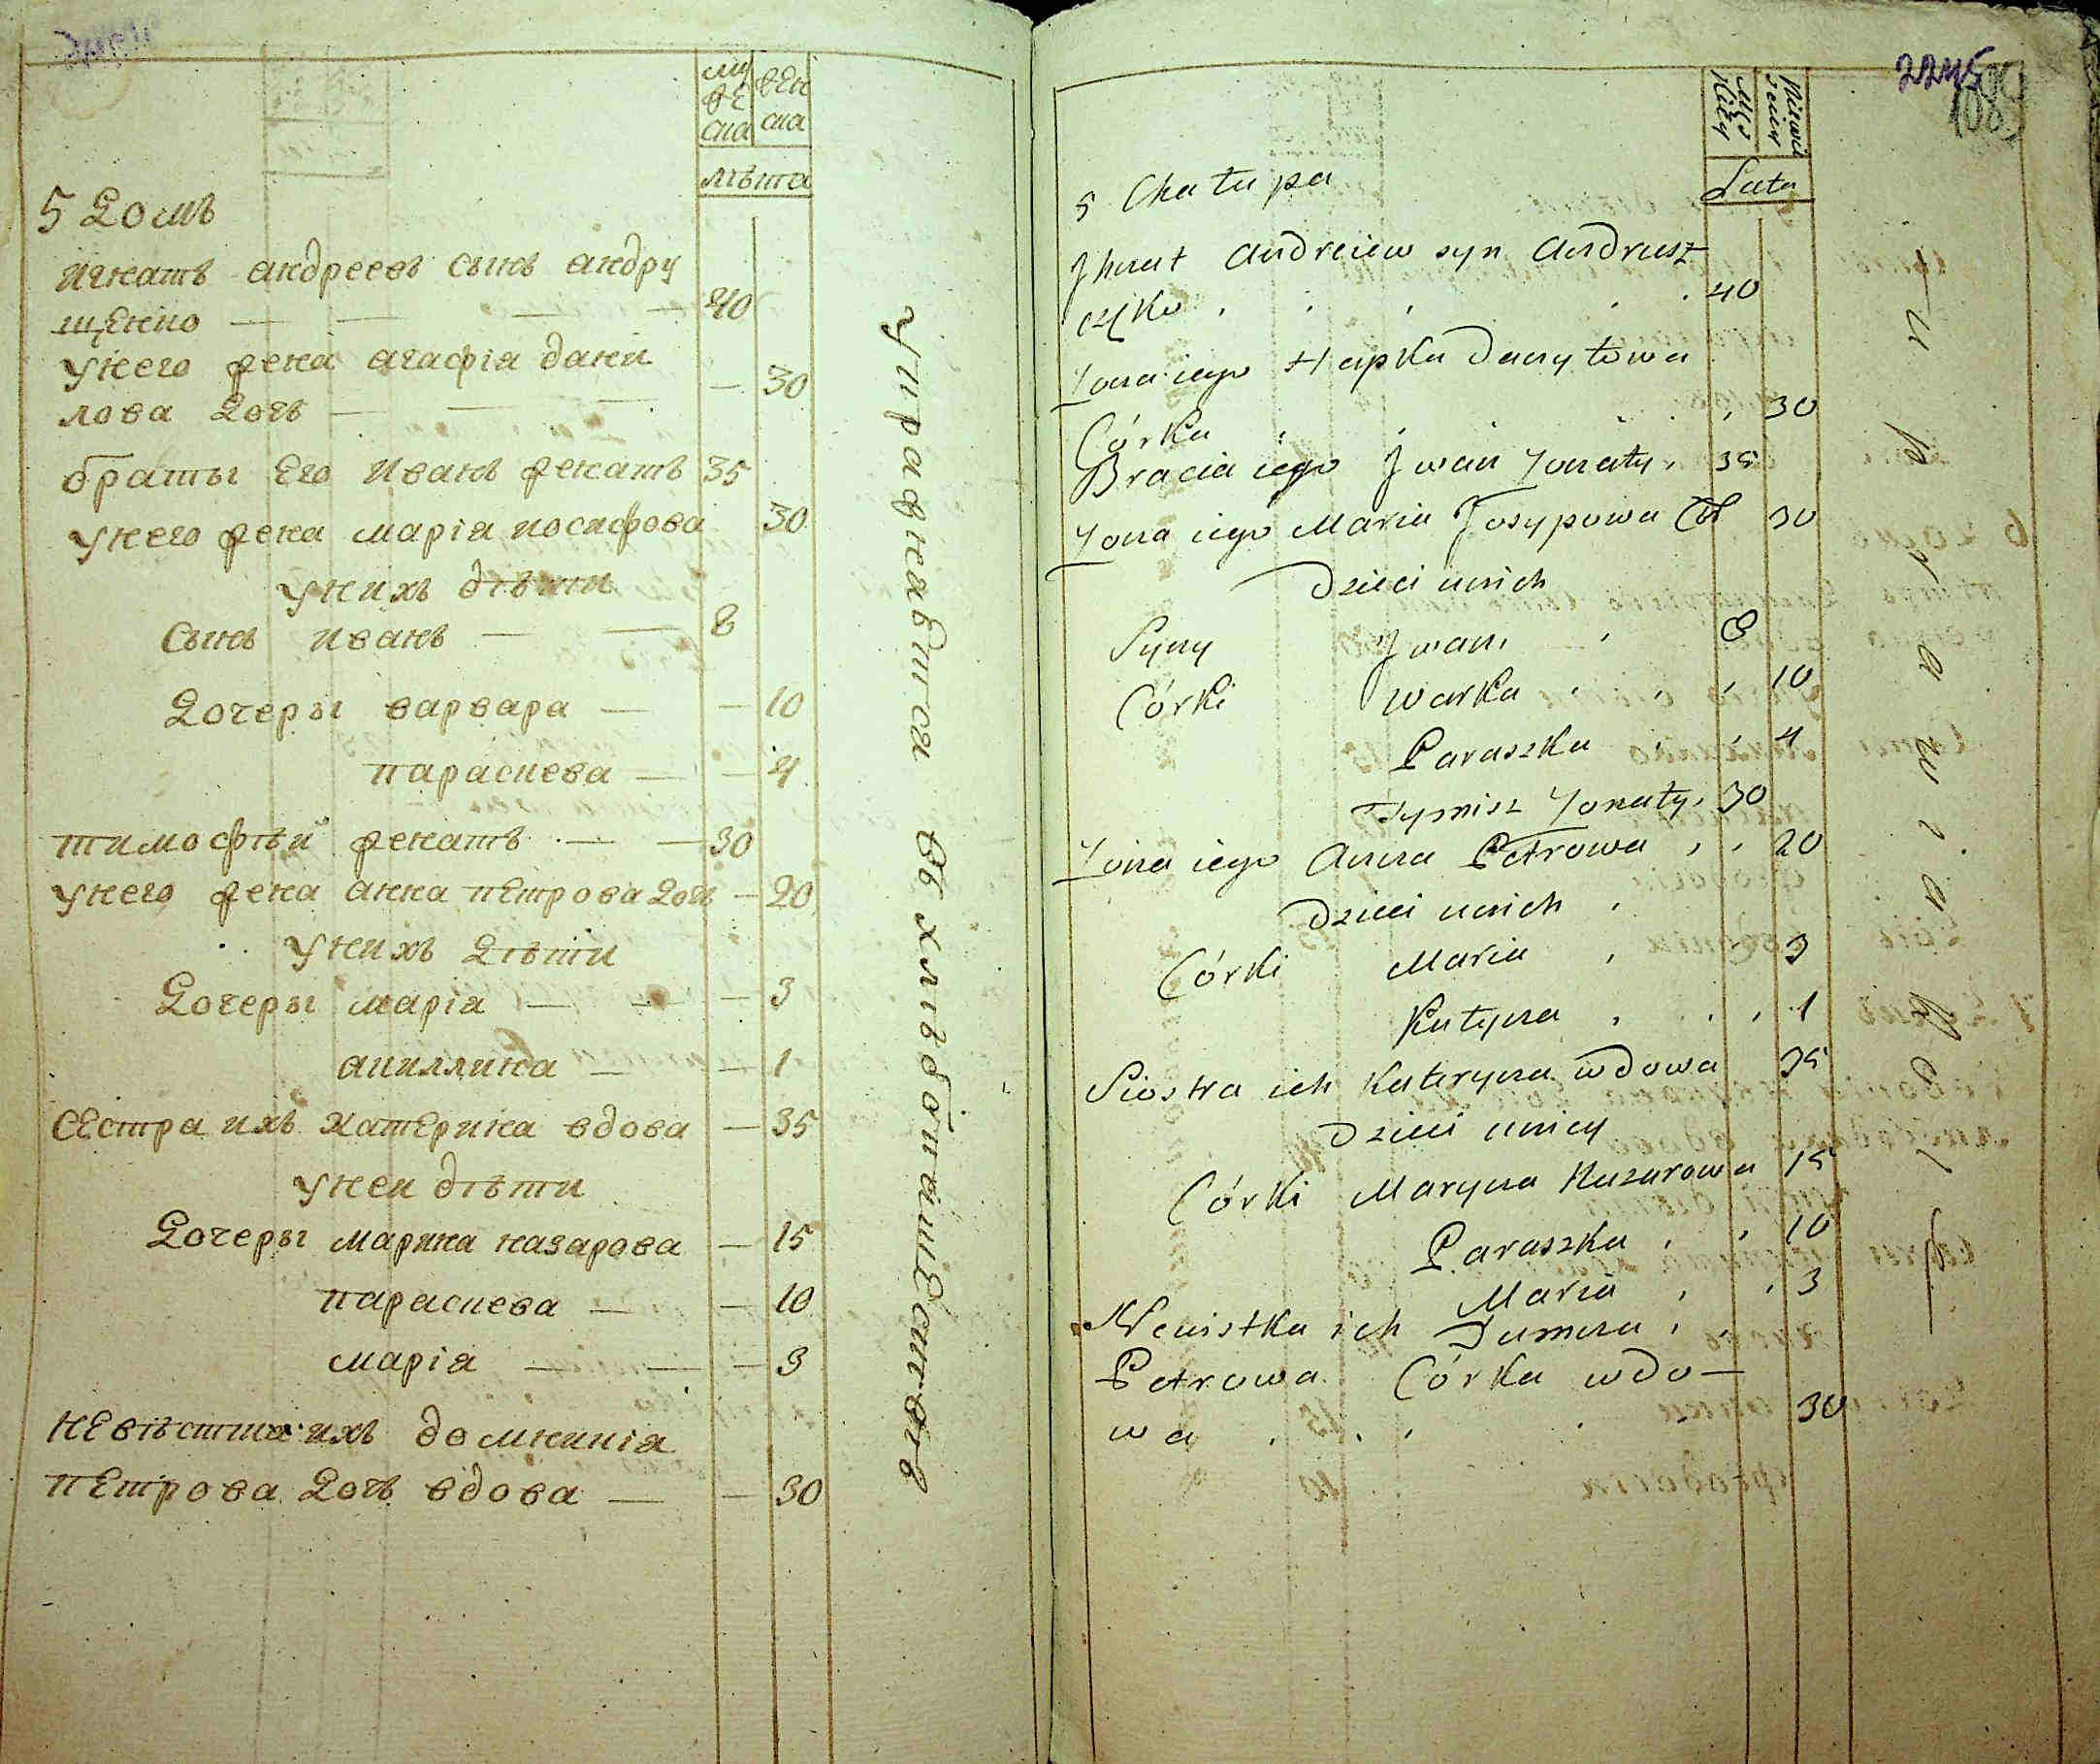 муже
ска
женска
лѣта
5 Домъ
игнатъ андреевъ сынъ андру
щенко — — — — 40
унего жена агафія дани
лова дочь — — — — 30
братъ Его иванъ женатъ 35
унего жена марія иосифова 30
унихъ дѣти
сынъ иванъ — — 8
Дочеры варвара — — 10
параскева — — 4
тимофѣй женатъ — — 30
унего жена анна пЕтрова Дочь — 20
унихъ Дѣти
Дочеры марія — — — 3
акиллина — — 1
сЕстра ихъ катЕрина вдова — 35
унеи дѣти
Дочеры марина назарова — 15
параскева — — 10
марія — — — 3
нЕвѣстка ихъ домникія
пЕтрова Дочь вдова — — 30
упражнавтся въ хлѣбопашЕствѣ
2245
108
Męs
kiey
Niewie
sciey
Lata
5 Chałupa
Jhnat Andreiew syn Andrusz
częko . . . . . 40
Zona iego Hapka Dany lowa
Córka . . . . , 30
Bracia iego Jwan Zonaty, 35
Zona iego Maria Josypowa Cór 30
Dzieci unich
Syny Jwan, , 8
Córki Warka , , , 10
Paraszka , , 4
Tymisz Zonaty, 30
Zona iego Anna Petrowa , , 20
Dzieci unich ,
Córki Maria , 3
Katyna , . , 1
Siostra ich Kateryna wdowa 35
Dzieci uniey
Córki Maryna Nazarowa 15
Paraszka , , 10
Maria , , 3
Newistka ich Dumna ,
Petrowa Córka wdo—
wa . . . . . 30